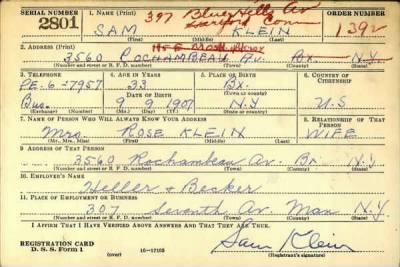 SERIAL NUMBER 1. NAME (Print) 397 Blue Hills Av ORDER NUMBER
2801 SAM KLEIN Hartford Conn 1392
(First) (Middle) (Last)
2. ADDRESS (Print)
3560 ROCHAMBEAU Av. Bx. N.Y.
(Number and street or R. F. D. number) (Town) (County) (State)
3. TELEPHONE 4. AGE IN YEARS 5. PLACE OF BIRTH 6. COUNTRY OF CITIZENSHIP
PE.-6-7957 33 Bx.
DATE OF BIRTH (Town or county)
Bus. 9 9 1907 N.Y U.S
(Exchange) (Number) (Mo.) (Day) (Yr.) (State or country)
7. NAME OF PERSON WHO WILL ALWAYS KNOW YOUR ADDRESS 8. RELATIONSHIP OF THAT PERSON
Mrs. ROSE KLEIN WIFE
(Mr., Mrs., Miss) (First) (Middle) (Last)
9. ADDRESS OF THAT PERSON
3560 Rochambeau Av. Bx N.Y.
(Number and street or R. F. D. number) (Town) (County) (State)
10. EMPLOYER'S NAME
Heller + Becker
11. PLACE OF EMPLOYMENT OR BUSINESS
307 Seventh Av Man N.Y
(Number and street or R. F. D. number) (Town) (County) (State)
I AFFIRM THAT I HAVE VERIFIED ABOVE ANSWERS AND THAT THEY ARE TRUE.
REGISTRATION CARD
D. S. S. Form 1 (over) 16—17105 Sam Klein
(Registrant's signature)